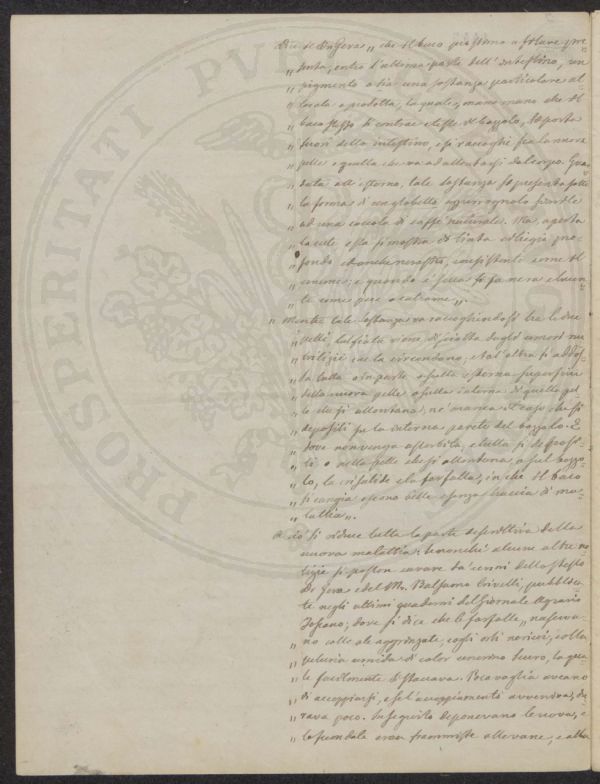 Dice il De Gera „ che il baco prossimo a filare pre-
„ senta, entro l'ultima parte dell'intestino, un
„ pigmento o sia una sostanza particolare al-
„ lorata o prodotta, la quale, mano mano che il
„ baco stesso si contrae e tesse il bozzolo, si porta
„ fuori dello intestino, e si raccoglie fra la nuova
„ pelle e quella che va ad allontanarsi dal corpo. Guar-
„ data all'esterno, tale sostanza si presenta sotto
„ la forma di un globetto simile
„ ad una coccola di caffè naturale. Ma aperta
„ la cute essa si mostra di tinta ciliegia pro-
„ fondo ed anche nerastra, consistente come il
„ cerume; e quando è secca si fa nera e lucen-
„ te come pece o catrame „.
„ Mentre tale sostanza va raccogliendosi tra le due
„ pelli, talfiata viene disciolta dagli umori nu-
„ tritizii che la circondano; e tal altra si addos-
„ sa tutta o in parte o sulla esterna superficie
„ della nuova pelle o sulla interna di quella pel-
„ le che si allontana; né manca il caso che si
„ depositi su la interna parete del bozzolo. E
„ dove non venga assorbita, e tutta si deposi-
„ ti o nella pelle che si allontana, o sul bozzo-
„ lo, la crisalide e la farfalla, in che il baco
„ si cangia escono belle e senza traccia di ma-
„ lattia „.
A ciò si riduce tutta la parte descrittiva della
nuova malattia. Senonchè alcune altre no-
tizie si posson cavare da' cenni dello stesso
De Gera e del Mr. Balsamo Crivelli, pubblica-
te negli ultimi quaderni del Giornale Agrario
Toscano; dove si dice che le farfalle „ nasceva-
„ no colle ale aggrinzate, cogli orli nericci, colla
„ peluria umida di color cenerino scuro, la qua-
„ le facilmente si staccava. Poca voglia aveano
„ di accoppiarsi, e se l'accoppiamento avveniva, du-
„ rava poco. In seguito deponevano le uova, e
„ le feconde eran frammiste alle vane, e altra